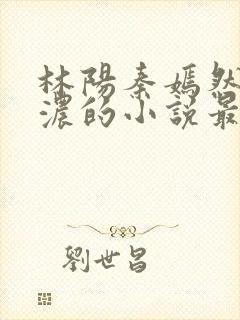 林陽秦嫣然
濃的小說最
劉世昌